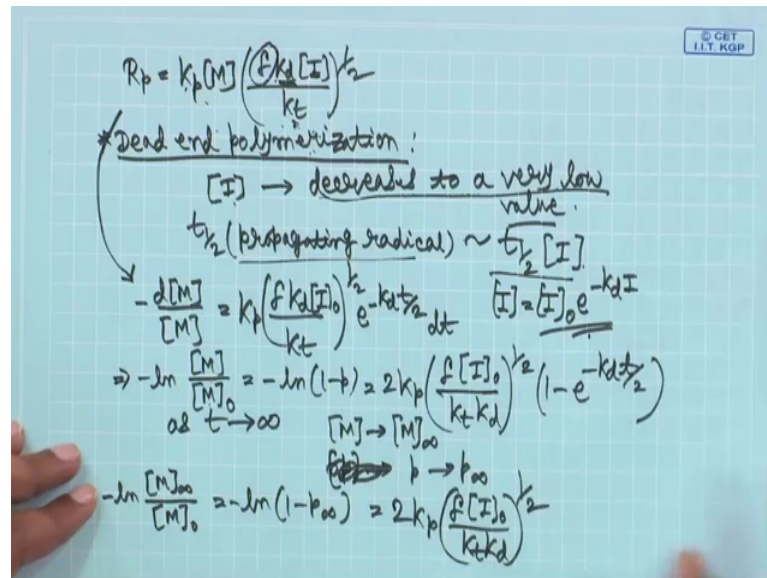 © CET
I.I.T. KGP
Rp = kp[M] (f kd [I] / kt)^1/2
* Dead end polymerization :
[I] → decreases to a very low
value.
t1/2 (propagating radical) ~ t1/2 [I]
[I] = [I]0 e^-kdI
-d[M]/[M] = kp (f kd[I]0 / kt)^1/2 e^-kdt/2 dt
⇒ -ln [M]/[M]0 = -ln(1-p) = 2kp (f[I]0 / ktkd)^1/2 (1-e^-kdt/2)
as t→∞ [M]→[M]∞
p → p∞
-ln [M]∞/[M]0 = -ln(1-p∞) = 2kp (f[I]0 / ktkd)^1/2